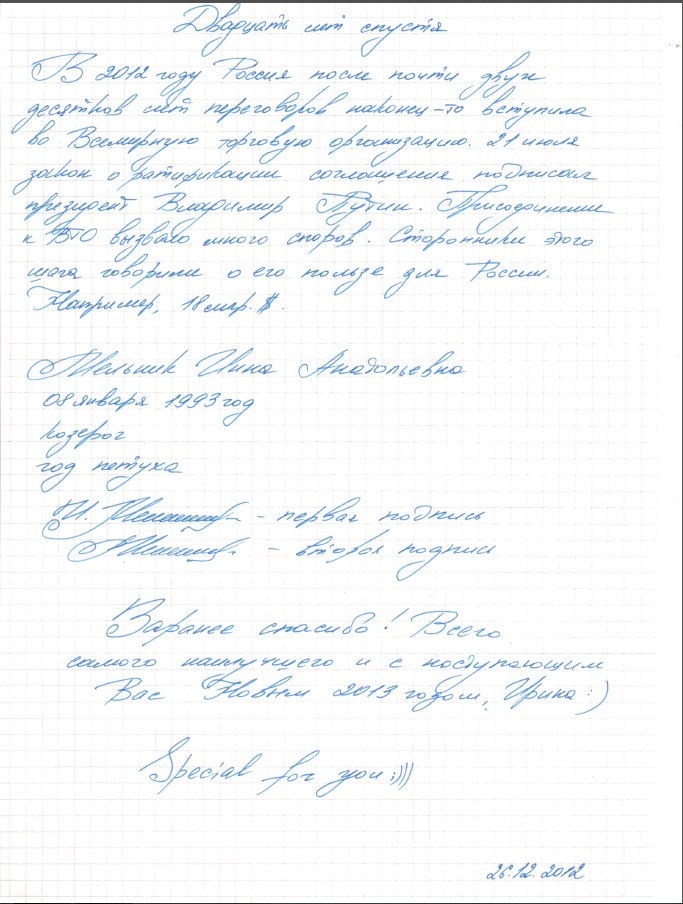 Двадцать лет спустя
В 2012 году Россия после почти двух
десятков лет переговоров наконец-то вступила
во Всемирную торговую организацию. 21 июля
закон о ратификации соглашения подписал
президент Владимир Путин. Присоединение
к ВТО вызвало много споров. Сторонники этого
шага говорили о его пользе для России.
Например, 18 млр. $.
Мельник Инна Анатольевна
08 января 1993 год
козерог
год петуха
И. - первая подпись
- вторая подпись
Заранее спасибо! Всего
самого наилучшего и с наступающим
Вас Новым 2013 годом, Ирина :)
Special for you ;)))
26.12.2012